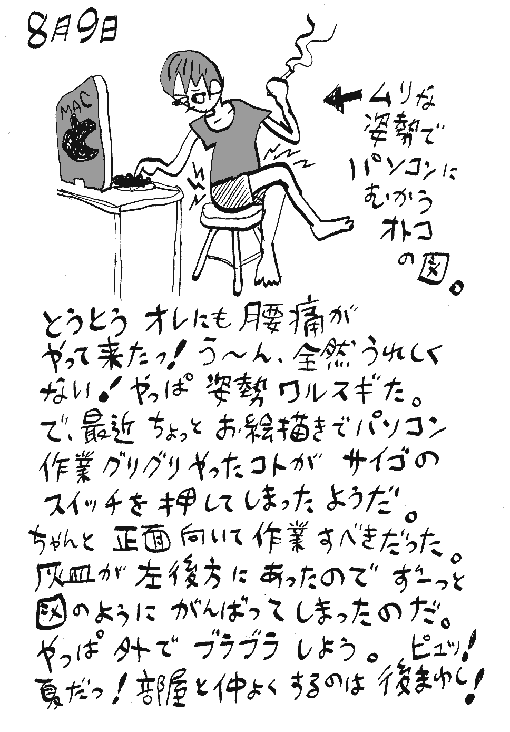 8月9日
MAC
ムリな
姿勢で
パソコンに
むかう
オトコ
の図。
とうとう オレにも 腰痛が
やって来たっ！う〜ん、全然うれしく
ない！やっぱ 姿勢 ワルスギた。
で、最近 ちょっと お絵描きでパソコン
作業グリグリやったコトが サイゴの
スイッチを押してしまったようだ。
ちゃんと 正面 向いて作業すべきだった。
灰皿が 左後方に あったので ずーっと
図のように がんばってしまったのだ。
やっぱ 外で ブラブラ しよう。 ピュッ！
夏だっ！部屋と仲よくするのは 後まわし！